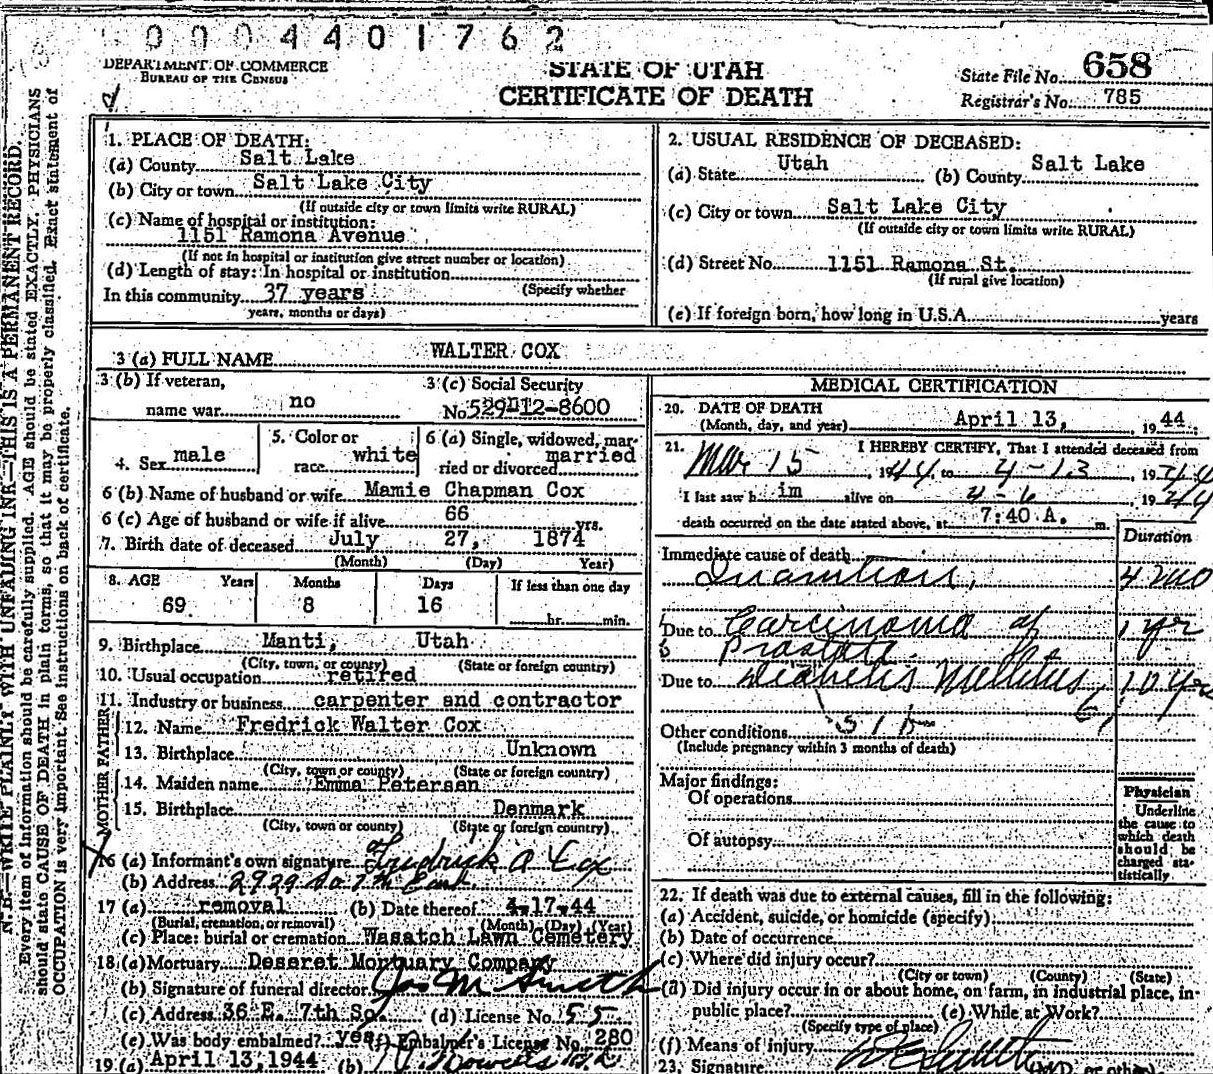 0004401762
DEPARTMENT OF COMMERCE
BUREAU OF THE CENSUS
STATE OF UTAH
CERTIFICATE OF DEATH
State File No. 658
Registrar's No. 785
N. B.—WRITE PLAINLY WITH UNFADING INK—THIS IS A PERMANENT RECORD.
Every item of information should be carefully supplied. AGE should be stated EXACTLY. PHYSICIANS
should state CAUSE OF DEATH in plain terms, so that it may be properly classified. Exact statement of
OCCUPATION is very important. See instructions on back of certificate.
1. PLACE OF DEATH:
(a) County Salt Lake
(b) City or town Salt Lake City
(If outside city or town limits write RURAL)
(c) Name of hospital or institution:
1151 Ramona Avenue
(If not in hospital or institution give street number or location)
(d) Length of stay: In hospital or institution
(Specify whether
In this community 37 years
years, months or days)
2. USUAL RESIDENCE OF DECEASED:
(a) State Utah (b) County Salt Lake
(c) City or town Salt Lake City
(If outside city or town limits write RURAL)
(d) Street No. 1151 Ramona St.
(If rural give location)
(e) If foreign born, how long in U.S.A. years
3 (a) FULL NAME WALTER COX
3 (b) If veteran,
name war no
3 (c) Social Security
No. 529-12-8600
4. Sex male
5. Color or
race white
6 (a) Single, widowed, mar-
ried or divorced married
6 (b) Name of husband or wife Mamie Chapman Cox
6 (c) Age of husband or wife if alive 66 yrs.
7. Birth date of deceased July 27, 1874
(Month) (Day) Year)
8. AGE Years Months Days If less than one day
69 8 16 hr. min.
9. Birthplace Manti, Utah
(City, town, or county) (State or foreign country)
10. Usual occupation retired
11. Industry or business carpenter and contractor
FATHER
12. Name Fredrick Walter Cox
13. Birthplace Unknown
(City, town or county) (State or foreign country)
MOTHER
14. Maiden name Emma Petersen
15. Birthplace Denmark
(City, town or county) (State or foreign country)
16 (a) Informant's own signature Fredrick A Cox
(b) Address 2929 So 7th East
17 (a) removal (b) Date thereof 4-17-44
(Burial, cremation, or removal) (Month) (Day) (Year)
(c) Place: burial or cremation Wasatch Lawn Cemetery
18 (a) Mortuary Deseret Mortuary Company
(b) Signature of funeral director Jos M Smith
(c) Address 36 E. 7th So. (d) License No. 55
(e) Was body embalmed? yes (f) Embalmer's License No. 280
19 (a) April 13, 1944 (b)
MEDICAL CERTIFICATION
20. DATE OF DEATH
(Month, day, and year) April 13, 1944
21. I HEREBY CERTIFY, That I attended deceased from
Mar 15, 1944, to 4-13, 1944
I last saw him alive on 4-6 1944
death occurred on the date stated above, at 7:40 A. m.
Duration
Immediate cause of death
Inanition, 4 mo
Due to Carcinoma of 1 yr
Prostate
Due to Diabetis Mellitus, 10 yrs
Other conditions
(Include pregnancy within 3 months of death)
Major findings:
Of operations
Of autopsy
Physician
Underline
the cause to
which death
should be
charged sta-
tistically
22. If death was due to external causes, fill in the following:
(a) Accident, suicide, or homicide (specify)
(b) Date of occurrence
(c) Where did injury occur?
(City or town) (County) (State)
(d) Did injury occur in or about home, on farm, in industrial place, in
public place? (e) While at Work?
(Specify type of place)
(f) Means of injury
23. Signature (M.D. or other)